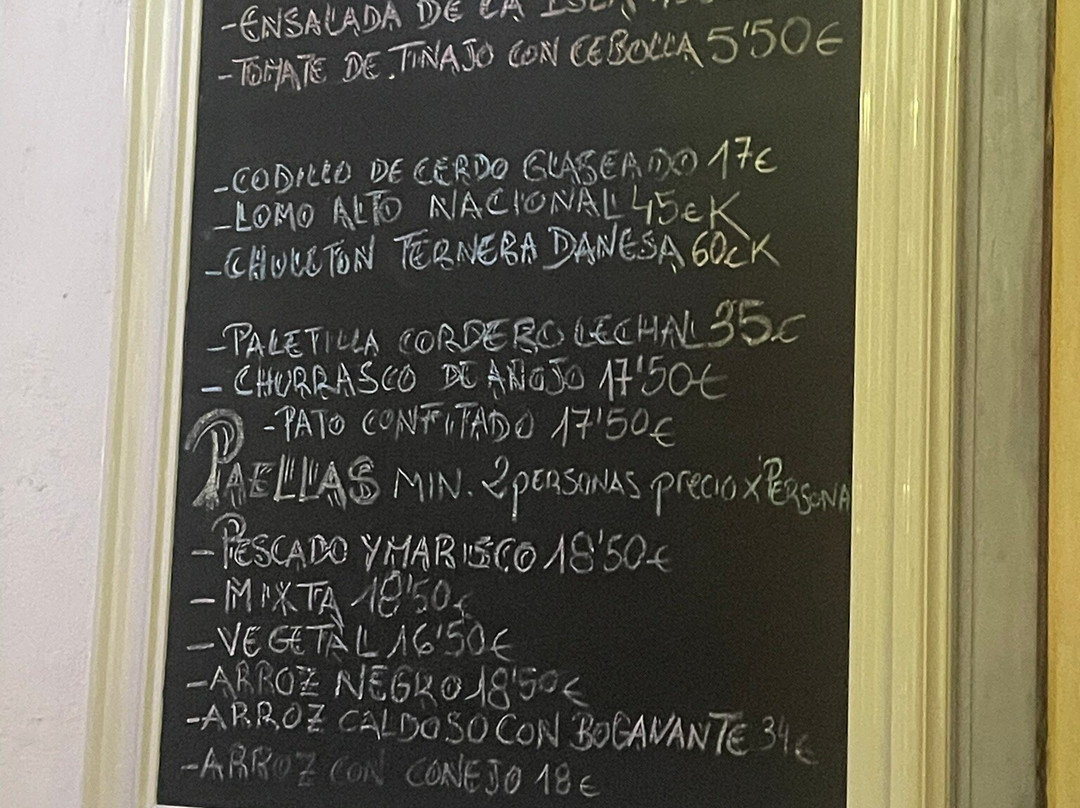 -ENSALADA DE LA ISLA
-TOMATE DE TINAJO CON CEBOLLA 5'50€
-CODILLO DE CERDO GLASEADO 17€
-LOMO ALTO NACIONAL 45€K
-CHULETON TERNERA DANESA 60€K
-PALETILLA CORDERO LECHAL 35€
-CHURRASCO DE AÑOJO 17'50€
-PATO CONFITADO 17'50€
PAELLAS MIN. 2 PERSONAS PRECIO X PERSONA
-PESCADO Y MARISCO 18'50€
-MIXTA 18'50€
-VEGETAL 16'50€
-ARROZ NEGRO 18'50€
-ARROZ CALDOSO CON BOGAVANTE 34€
-ARROZ CON CONEJO 18€